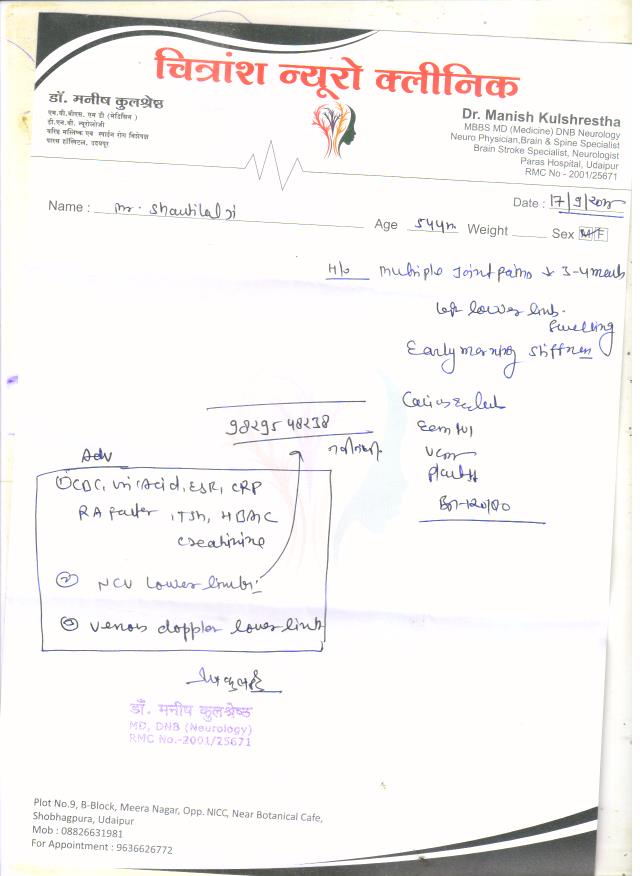 चित्रांश न्यूरो क्लीनिक
डॉ. मनीष कुलश्रेष्ठ
एम.बी.बी.एस. एम डी (मेडिसिन)
डी.एन.बी. न्यूरोलोजी
वरिष्ठ मस्तिष्क एवं स्पाईन रोग विशेषज्ञ
पारस हॉस्पिटल, उदयपुर
Dr. Manish Kulshrestha
MBBS MD (Medicine) DNB Neurology
Neuro Physician,Brain & Spine Specialist
Brain Stroke Specialist, Neurologist
Paras Hospital, Udaipur
RMC No - 2001/25671
Date : 17/9/
Name : Mr.
Age 54 Weight Sex M/F
H/o Multiple Joint pains 3-4
left lower limb.
Swelling
Early morning stiffness
9829548238
Adv
① CBC, Uric Acid, ESR, CRP
RA factor, TSH, HBA1C
creatinine
② NCV Lower limbs
③ Venous doppler lower limb
BP-120/80
डॉ. मनीष कुलश्रेष्ठ
MD, DNB (Neurology)
RMC No.-2001/25671
Plot No.9, B-Block, Meera Nagar, Opp. NICC, Near Botanical Cafe,
Shobhagpura, Udaipur
Mob : 08826631981
For Appointment : 9636626772